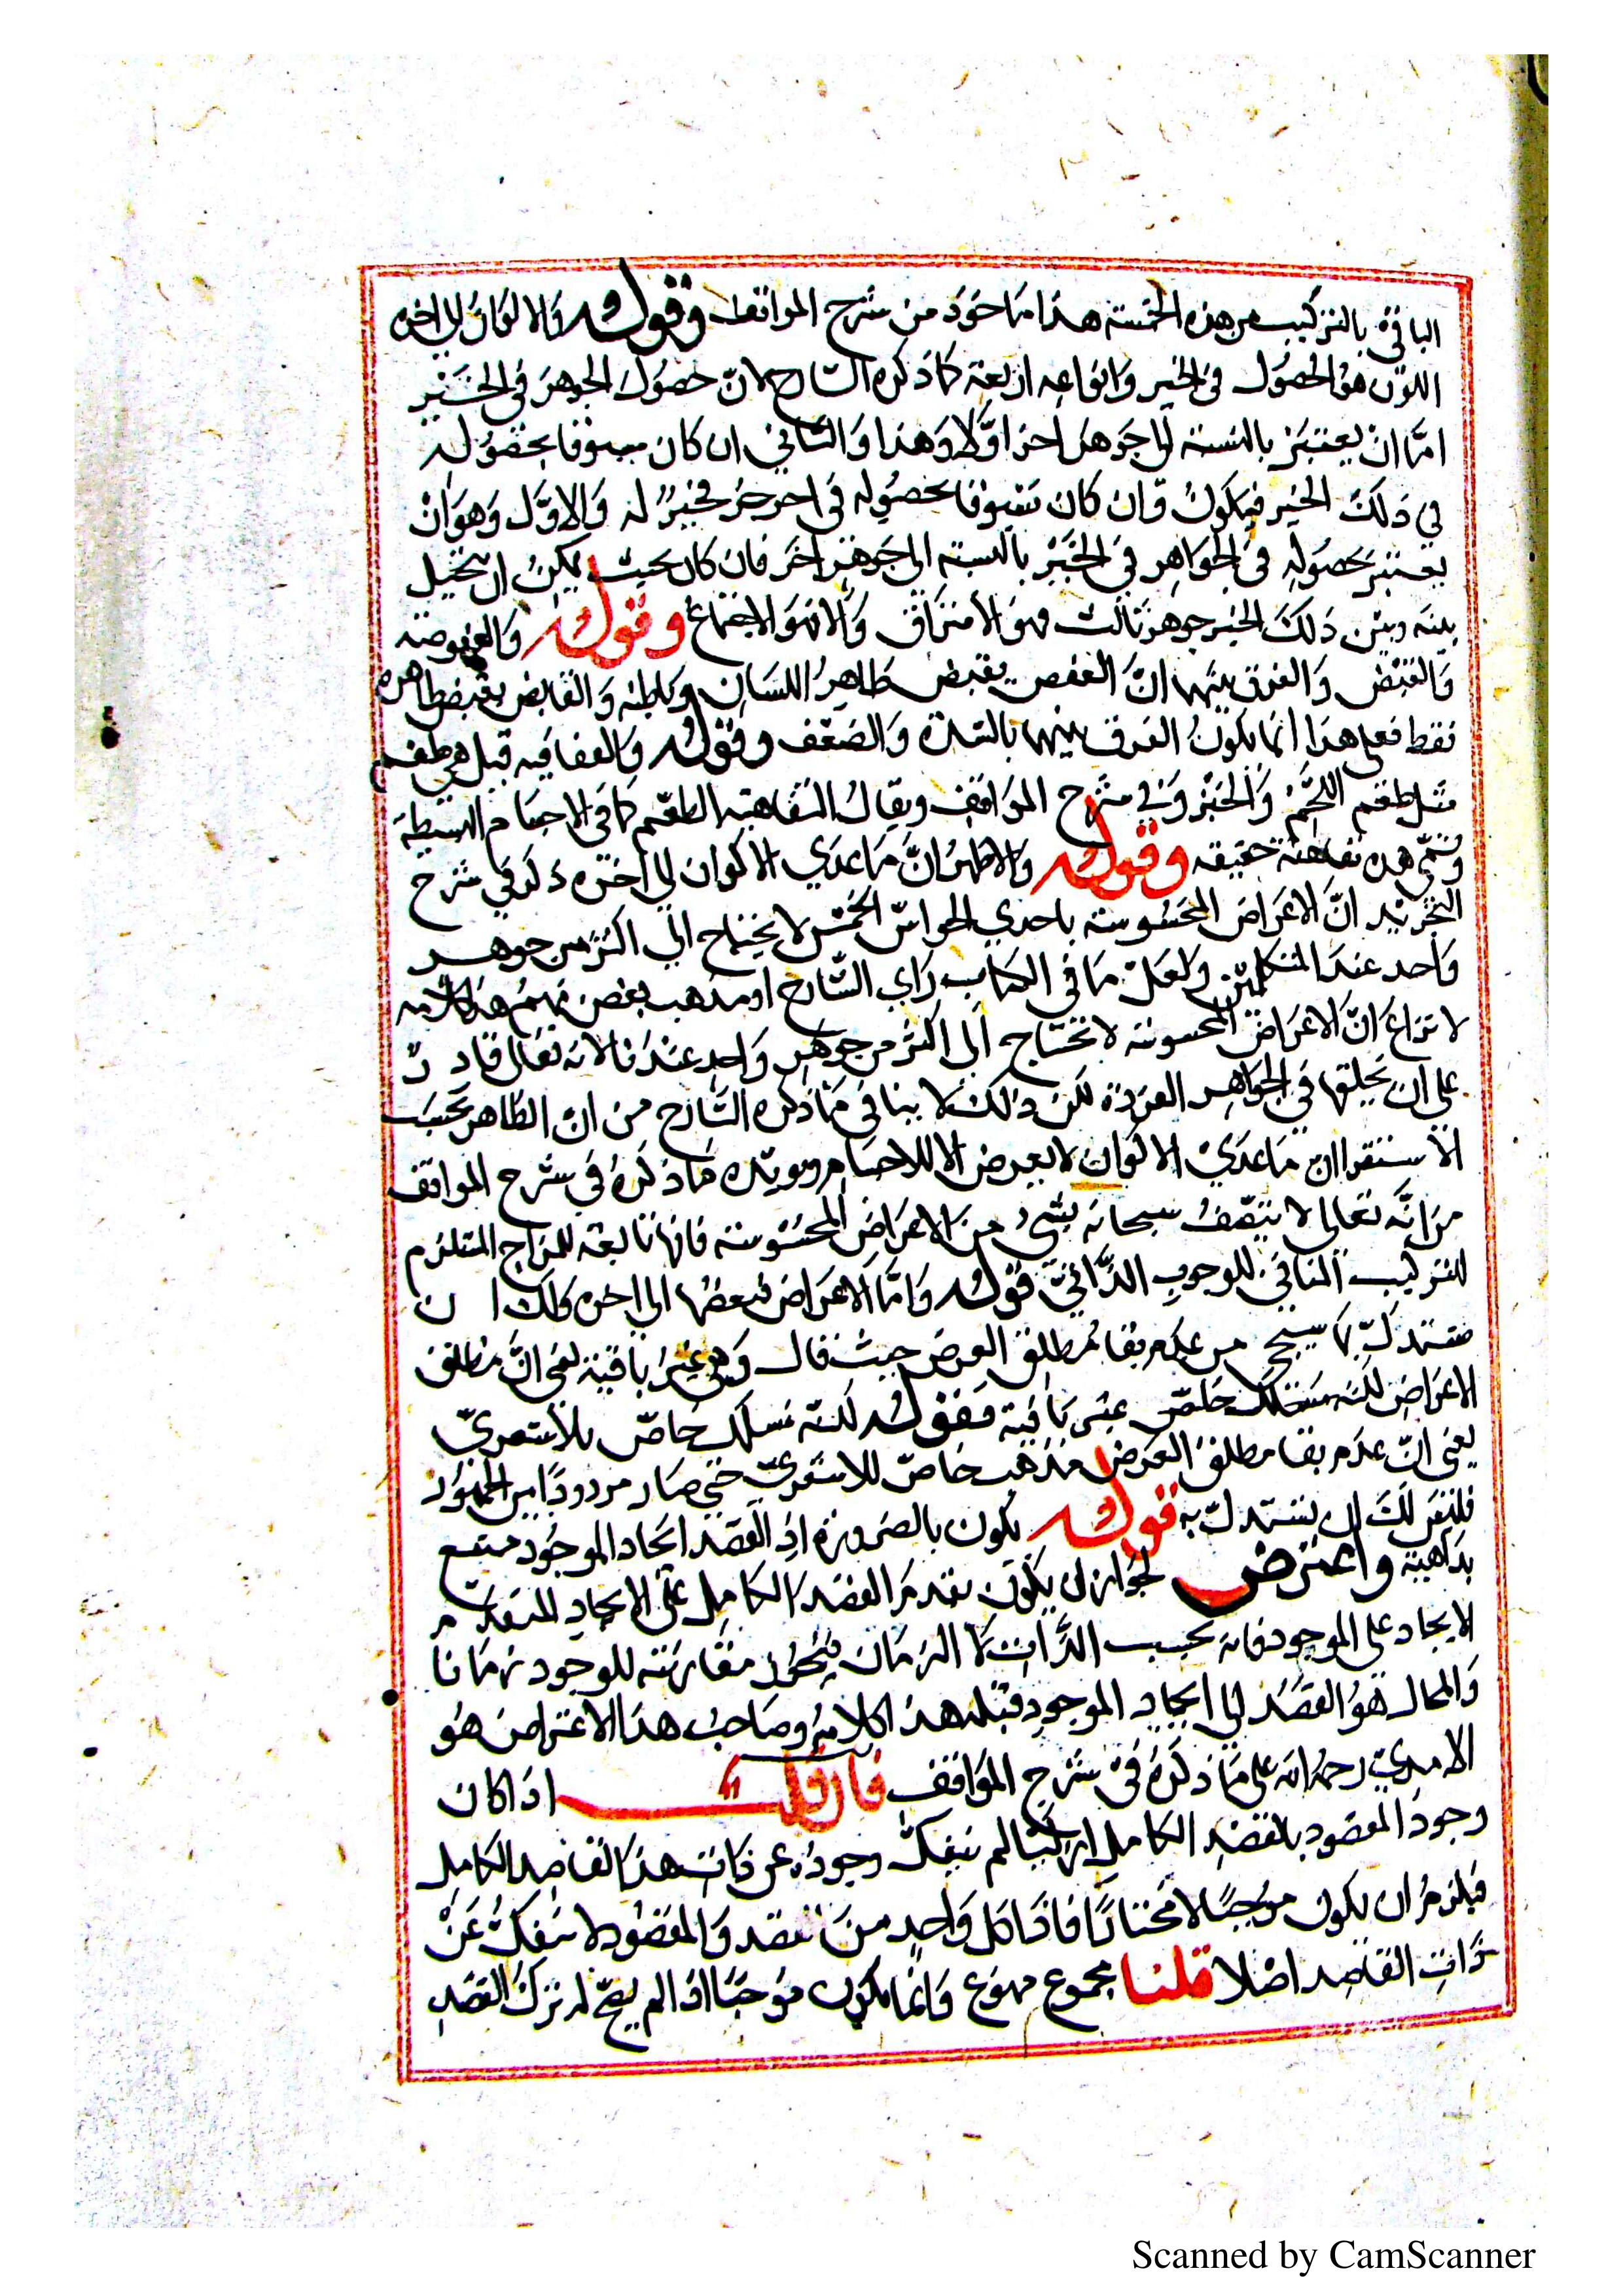 الباقية بالتركيب من هذه الخمسة هذا ماخوذ من شرح المواقف وقوله والاكوان الى اخره
الكون هو الحصول في الحيز وانواعه اربعة كما ذكره الشارح لان حصول الجوهر في الحيز
امّا ان يعتبر بالنسبة الى جوهر اخر اوّلا وهذا والثاني ان كان مسبوقا بحصوله
في ذلك الحيز فيكون وان كان مسبوقا بحصوله في اخر حيز له والاوّل وهو ان
يعتبر حصوله في الجواهر في الحيز بالنسبة الى جوهر اخر فان كان بحيث يمكن ان يتخيل
بينه وبين ذلك الحيز جوهر ثالث فهو الافتراق والا فهو الاجتماع وقوله والعفوصة
والقبض والفرق بينهما انّ العفص يقبض ظاهر اللسان وباطنه والقابض يقبض ظاهره
فقط فعلى هذا انما يكون الفرق بينهما بالشدة والضعف وقوله قيل هي طعم
مثل طعم اللحم والخبز وفي شرح المواقف ويقال التفاهة الطعم كما في الاجسام البسيطة
وتسمّى هذه تفاهة حقيقة وقوله والاظهر انّ ما عدي الاكوان الى اخره ذكر في شرح
التجريد انّ الاعراض المحسوسة باحدي الحواسّ الخمس لا يحتاج الى اكثر من جوهر
واحد عند المتكلمين ولعل ما في الكتاب راي الشارح او مذهب بعض منهم هذا كلامه
لا نزاع انّ الاعراض المحسوسة لا تحتاج الى اكثر من جوهر واحد عندنا لانه تعالى قادر
على ان يخلقها في الجواهر الفردة لكن ذلك لا ينافي ما ذكره الشارح من انّ الظاهر بحسب
الاستقرا ان ما عدي الاكوان لا يعرض الا للاجسام ويويّده ما ذكره في شرح المواقف
من انّه تعالى لا يتّصف سبحانه بشيء من الاعراض المحسوسة فانها تابعة للمزاج المستلزم
للتركيب المنافي للوجوب الذّاتيّ قوله وامّا الاعراض فبعضها الى اخره ولك ان
تستدلّ بما سيجي من عدم بقا مطلق العرض حيث قال وهي غير باقية يعني انّ مطلق
الاعراض لكنه مسلك خاصّ غير باقية فقوله لكنّه مسلك خاصّ بالاشعريّ
يعني انّ عدم بقا مطلق العرض مذهب خاصّ للاشعريّ حتي صار مردودًا بين الجمهور
فليس لك ان يستدلّ به قوله يكون بالضرورة اذ القصد ايجاد الموجود ممتنع
بداهية واعترض لجواز ان يكون تقدم القصد الكامل على الايجاد كتقدم
الايجاد على الموجود فانه بحسب الذّات لا الزمان فيجوز مقارنته للوجود زمانا
والمحال هو القصد الى ايجاد الموجود قبله هذا كلامه وصاحب هذا الاعتراض هو
الامديّ رحمه الله على ما ذكره في شرح المواقف فان قلت اذا كان
وجود المقصود بالقصد الكامل ازليّا لم ينفكّ وجوده عن ذات هذا القاصد الكامل
فيلزم ان يكون موجبًا لا مختارًا فاذا كل واحد من القصد والمقصود لا ينفكّ عن
ذات القاصد اصلا قلنا مجموع ممنوع وانّما يكون موجبًا اذا لم يصحّ له ترك القصد
Scanned by CamScanner